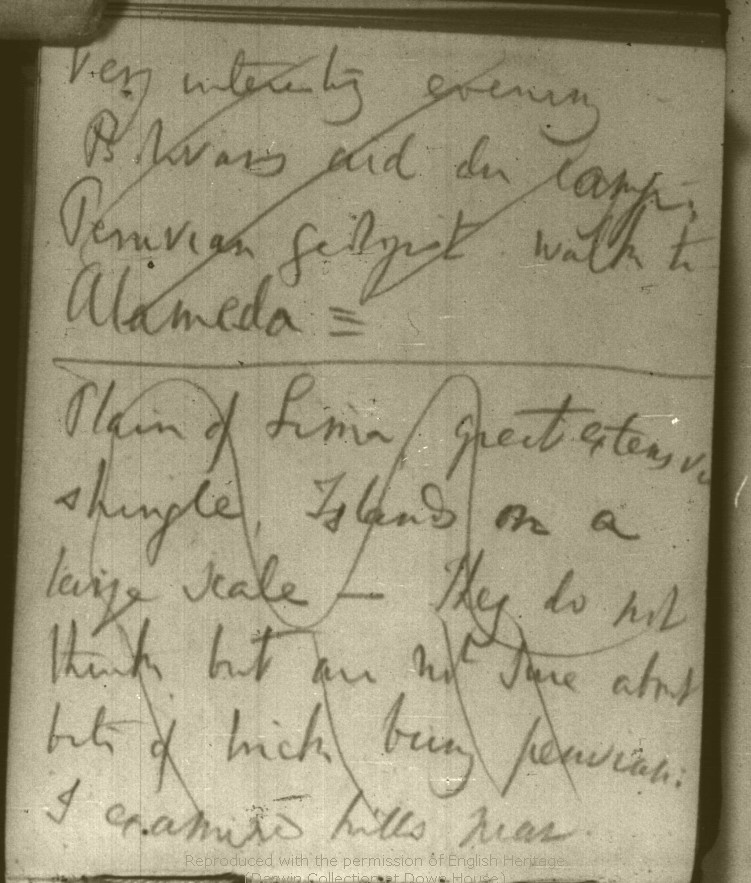 Very interesting evening
and
Peruvian geologist walk to
Alameda =
Plain of Lima, great extensive
shingle, Islands on a
large scale — They do not
think but are not sure about
bits of brick being peruvian:
I examined hills near
Reproduced with the permission of English Heritage
(Darwin Collection at Down House)